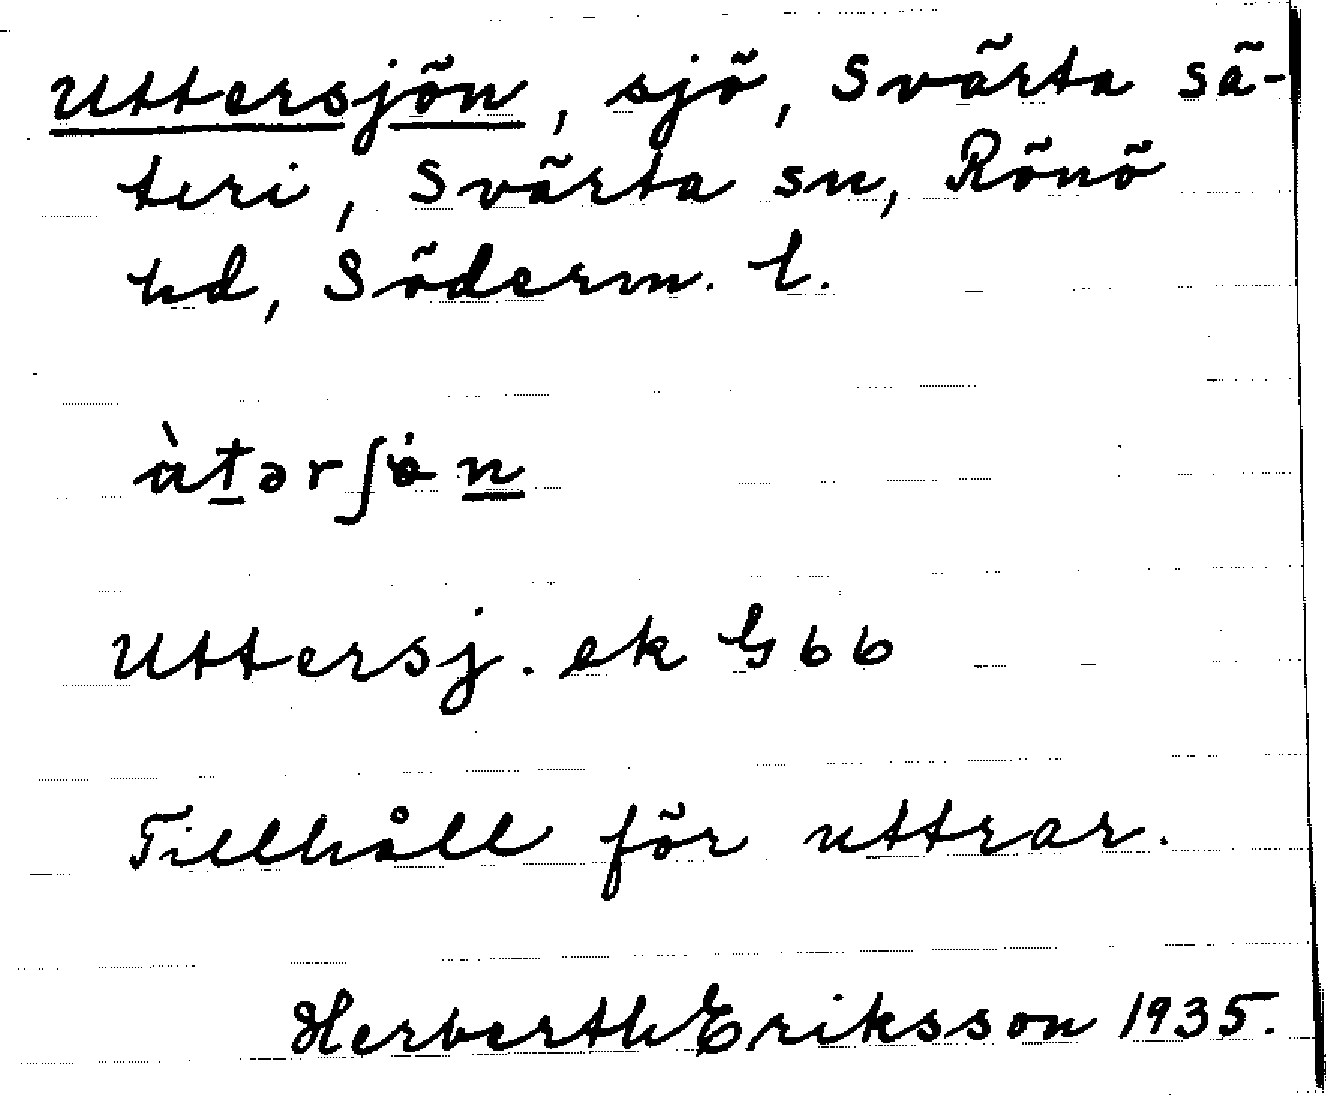 Uttersjön, sjö, Svärta sä-
teri, Svärta sn, Rönö
hd, Söderm. l.
àtərʃɵn
Uttersj. ek G 66
Tillhåll för uttrar.
Herberth Eriksson 1935.